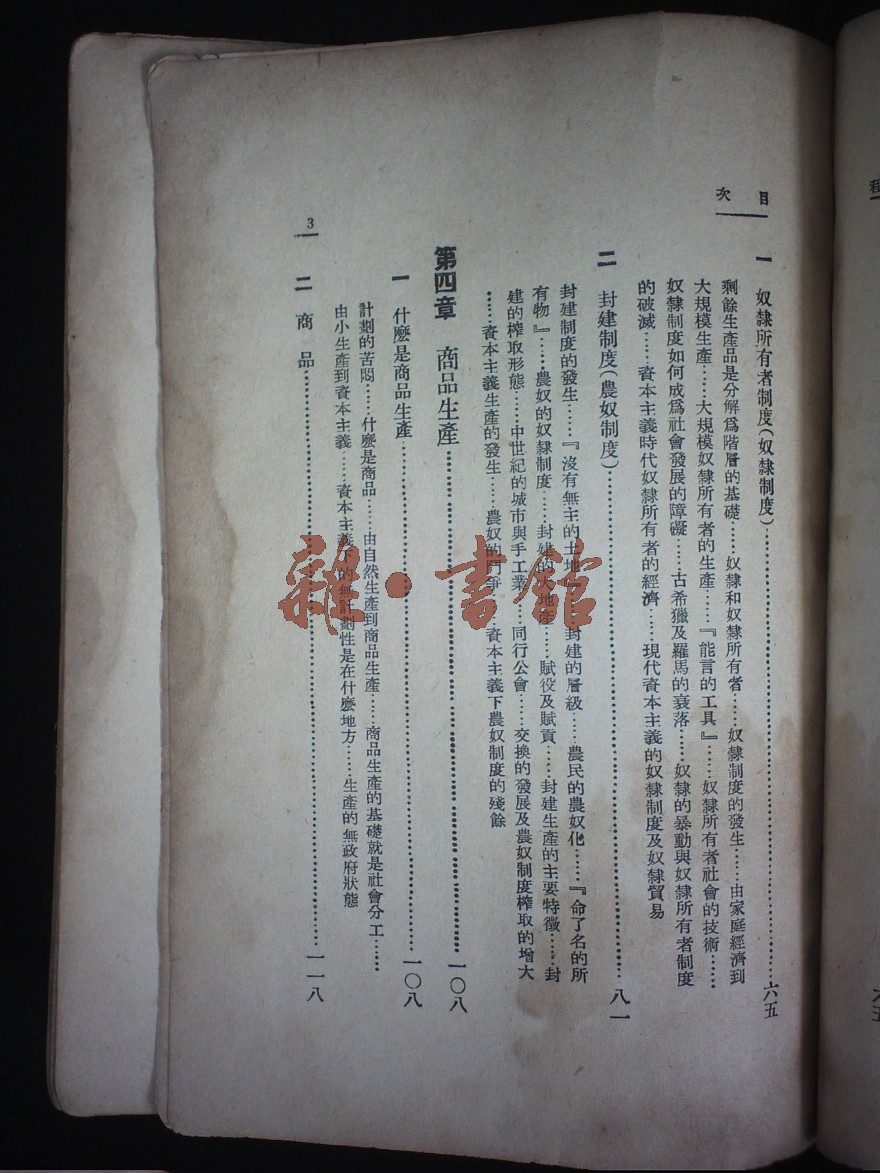 目次
一 奴隸所有者制度(奴隸制度)……六五
剩餘生產品是分解爲階層的基礎……奴隸和奴隸所有者……奴隸制度的發生……由家庭經濟到
大規模生產……大規模奴隸所有者的生產……『能言的工具』……奴隸所有者社會的技術……
奴隸制度如何成爲社會發展的障礙……古希獵及羅馬的衰落……奴隸的暴動與奴隸所有者制度
的破滅……資本主義時代奴隸所有者的經濟……現代資本主義的奴隸制度及奴隸貿易
二 封建制度(農奴制度)……八一
封建制度的發生……『沒有無主的土地』……封建的層級……農民的農奴化……『命了名的所
有物』……農奴的奴隸制度……封建的大地產……賦役及賦貢……封建生產的主要特徵……封
建的榨取形態……中世紀的城市與手工業……同行公會……交換的發展及農奴制度榨取的增大
……資本主義生產的發生……農奴的鬥爭……資本主義下農奴制度的殘餘
第四章 商品生產……一〇八
一 什麼是商品生產……一〇八
計劃的苦悶……什麼是商品……由自然生產到商品生產……商品生產的基礎就是社會分工……
由小生產到資本主義……資本主義下的無計劃性是在什麼地方……生產的無政府狀態
二 商品……一一八
3
雜·書館
程
六五